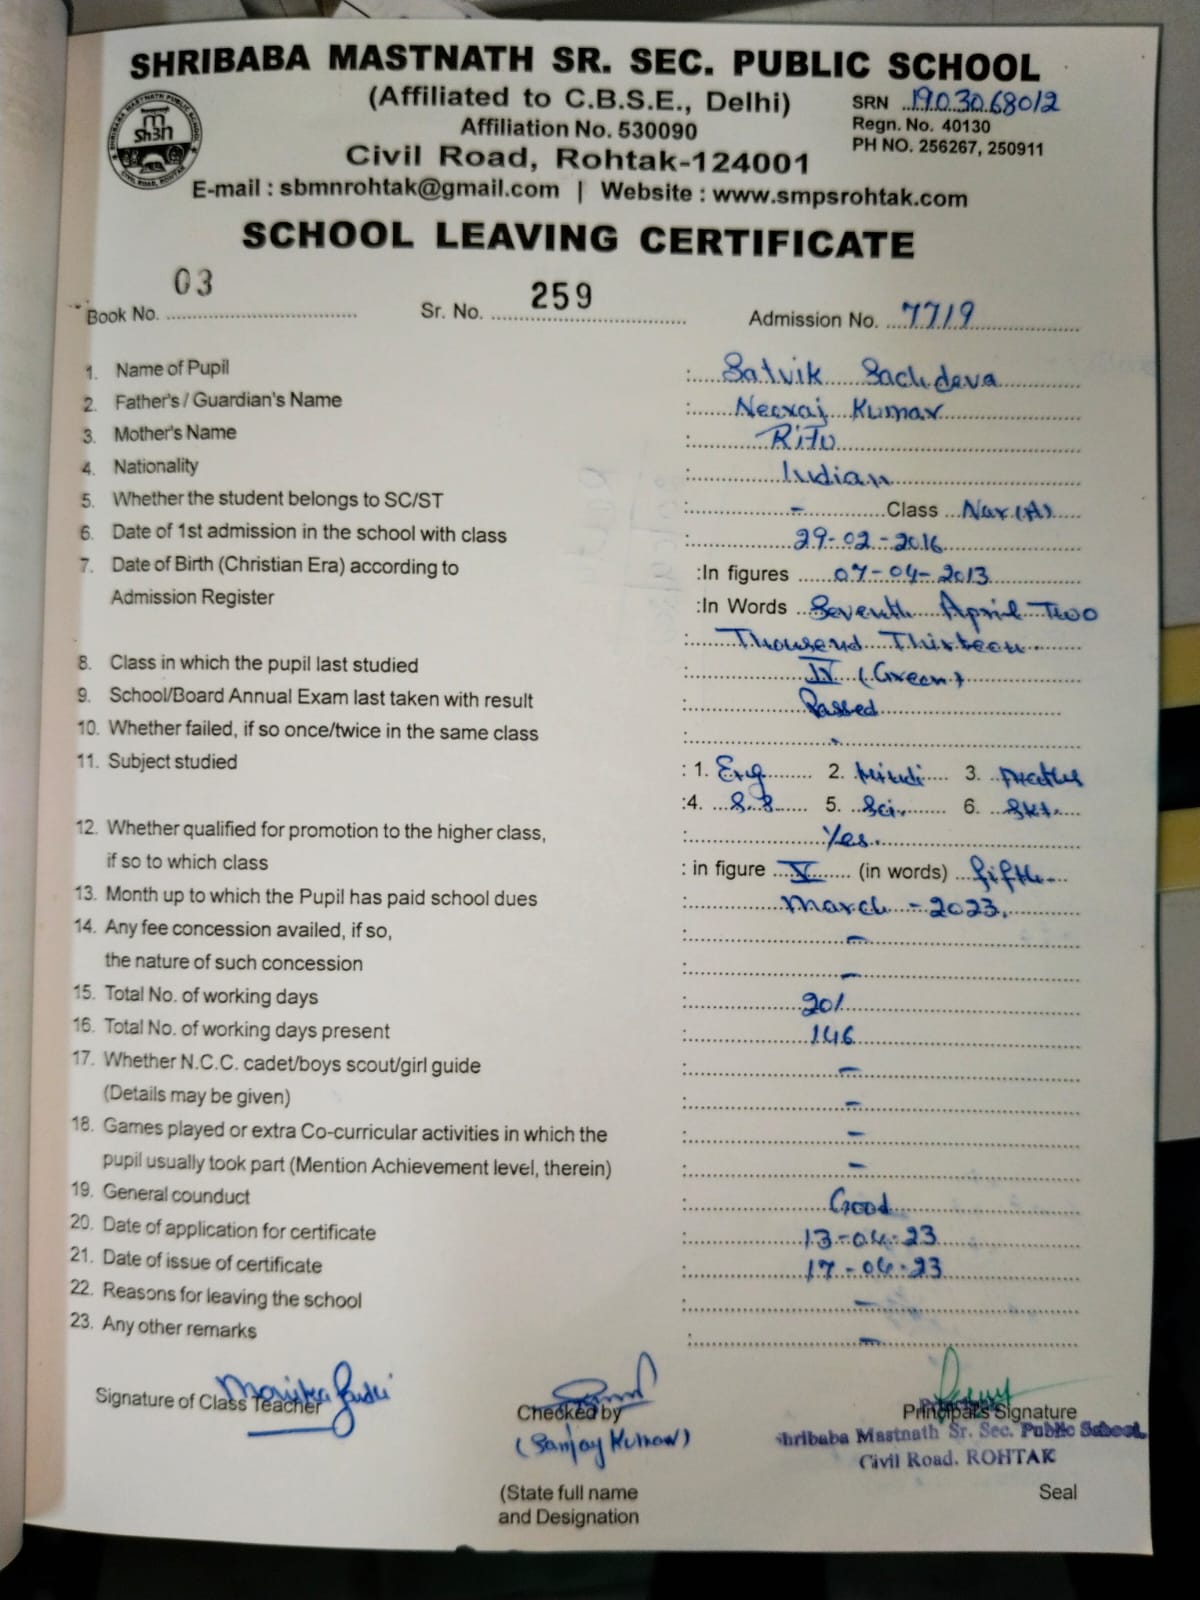 SHRIBABA MASTNATH SR. SEC. PUBLIC SCHOOL
(Affiliated to C.B.S.E., Delhi)
SRN 1903068012
Affiliation No. 530090
Regn. No. 40130
Civil Road, Rohtak-124001
PH NO. 256267, 250911
E-mail : sbmnrohtak@gmail.com | Website : www.smpsrohtak.com
SCHOOL LEAVING CERTIFICATE
Book No. 03 Sr. No. 259 Admission No. 7719
1. Name of Pupil : Satvik Sachdeva
2. Father's / Guardian's Name : Neeraj Kumar
3. Mother's Name : Ritu
4. Nationality : Indian
5. Whether the student belongs to SC/ST : - Class Nur(A)
6. Date of 1st admission in the school with class : 29-02-2016
7. Date of Birth (Christian Era) according to :In figures 07-04-2013
Admission Register :In Words Seventh April Two
: Thousend Thirteen
8. Class in which the pupil last studied : IV (Green)
9. School/Board Annual Exam last taken with result : Passed
10. Whether failed, if so once/twice in the same class : -
11. Subject studied : 1. Eng 2. Hindi 3. Maths
:4. S.S 5. Sci. 6. Skt.
12. Whether qualified for promotion to the higher class, : Yes.
if so to which class : in figure V (in words) fifth
13. Month up to which the Pupil has paid school dues : March - 2023.
14. Any fee concession availed, if so, : -
the nature of such concession : -
15. Total No. of working days : 201
16. Total No. of working days present : 146
17. Whether N.C.C. cadet/boys scout/girl guide : -
(Details may be given) : -
18. Games played or extra Co-curricular activities in which the : -
pupil usually took part (Mention Achievement level, therein) : -
19. General counduct : Good
20. Date of application for certificate : 13-04-23
21. Date of issue of certificate : 17-04-23
22. Reasons for leaving the school : -
23. Any other remarks : -
Monika
Signature of Class Teacher Checked by Principal's Signature
(Sanjay Kumar) Shribaba Mastnath Sr. Sec. Public School,
Civil Road. ROHTAK
(State full name Seal
and Designation